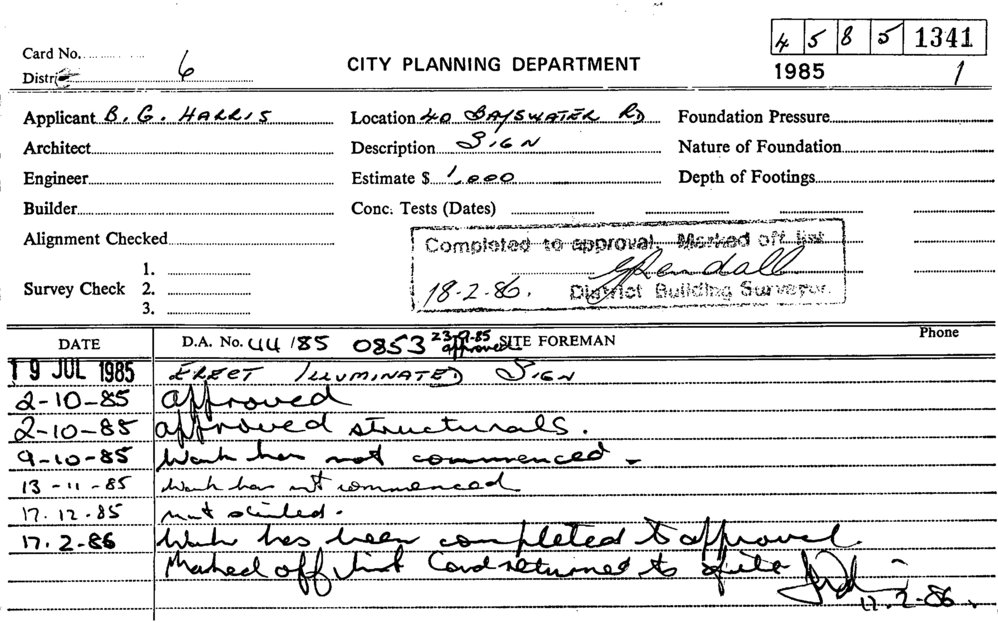 4 5 8 5 1341
Card No.
Distric 6
CITY PLANNING DEPARTMENT
1985 1
Applicant B. G. HARRIS Location 40 BAYSWATER RD Foundation Pressure
Architect Description SIGN Nature of Foundation
Engineer Estimate $ 1,000 Depth of Footings
Builder Conc. Tests (Dates)
Alignment Checked
Completed to approval. Marked off list
Survey Check 1. 2. 3.
18-2-86. District Building Surveyor.
DATE D.A. No. 44/85 0853 approved SITE FOREMAN Phone
19 JUL 1985 ERECT ILLUMINATED SIGN
2-10-85 approved
2-10-85 approved structurals.
9-10-85 Work has not commenced -
13-11-85 Work has not commenced
17.12.85 not started.
17.2.86 Work has been completed to approval
Marked off list Card returned to file
17-2-86.